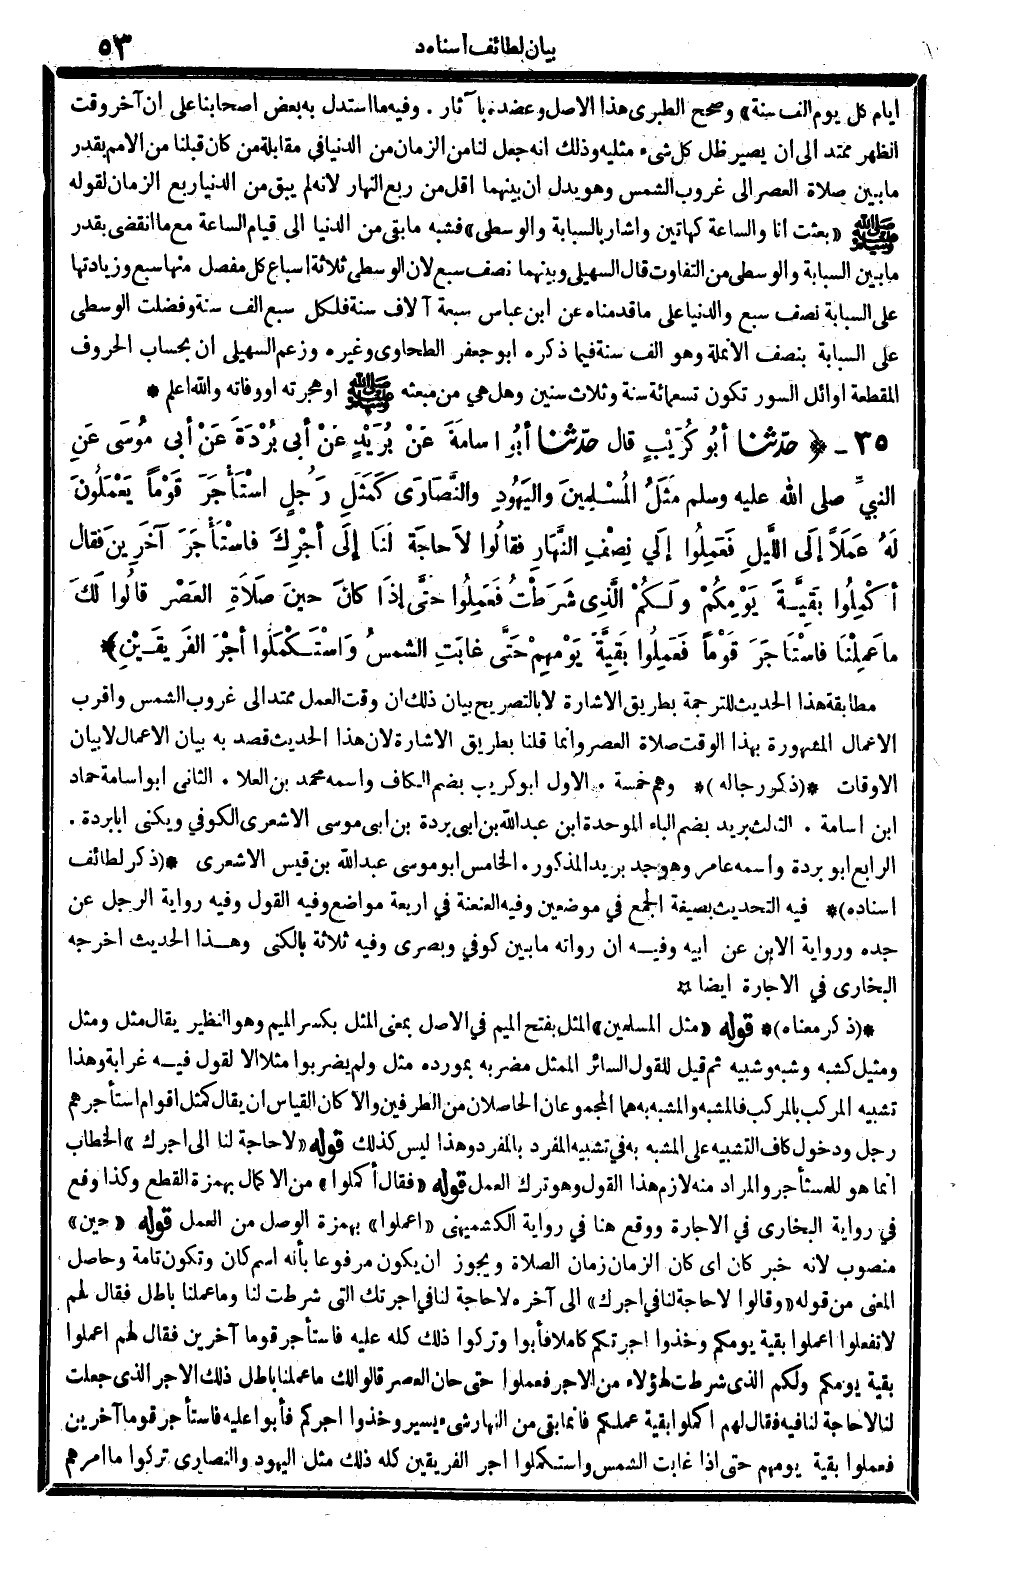 بيان لطائف أسناده ٥٣
ايام كل يوم الف سنة» وصحح الطبرى هذا الاصل وعضده بآثار . وفيه ما استدل به بعض اصحابنا على ان آخر وقت
الظهر ممتد الى ان يصير ظل كل شىء مثليه وذلك انه جعل لنا من الزمان من الدنيا في مقابلة من كان قبلنا من الامم بقدر
ما بين صلاة العصر الى غروب الشمس وهو يدل ان بينهما اقل من ربع النهار لانه لم يبق من الدنيا ربع الزمان لقوله
ﷺ «بعثت أنا والساعة كهاتين واشار بالسبابة والوسطى» فشبه ما بقى من الدنيا الى قيام الساعة مع ما انقضى بقدر
ما بين السبابة والوسطى من التفاوت قال السهيلى وبينهما نصف سبع لان الوسطى ثلاثة اسباع كل مفصل منها سبع وزيادتها
على السبابة نصف سبع والدنيا على ما قدمناه عن ابن عباس سبعة آلاف سنة فلكل سبع الف سنة وفضلت الوسطى
على السبابة بنصف الأنملة وهو الف سنة فيما ذكره ابو جعفر الطحاوى وغيره وزعم السهيلى ان بحساب الحروف
المقطعة اوائل السور تكون تسعمائة سنة وثلاث سنين وهل هي من مبعثه ﷺ او هجرته او وفاته والله اعلم *
٣٥ - ﴿ حدّثنا أبُو كُرَيْبٍ قال حدّثنا أبُو اسامةَ عَنْ بُرَيْدٍ عَنْ أبى بُرْدَةَ عَنْ أبى مُوسَى عَنِ
النبيِّ صلى الله عليه وسلم مَثَلُ المُسْلِمِينَ واليَهُودِ والنَّصَارَى كَمَثَلِ رَجُلٍ استَأجَرَ قَوْماً يَعْمَلُونَ
لَهُ عَمَلاً إلَى اللَّيلِ فَعَمِلُوا إلَي نِصْفِ النَّهَارِ فقالُوا لاَ حاجَةَ لَنَا إلَى أجْرِكَ فاسْتَأجَرَ آخَرِينَ فقال
أكْمِلُوا بَقِيَّةَ يَوْمِكُمْ ولَكُمْ الَّذِى شَرَطْتُ فَعَمِلُوا حتَّى إذَا كانَ حينَ صَلاَةِ العَصْرِ قالُوا لَكَ
ما عَمِلْنَا فاسْتَأجَرَ قَوْماً فَعَمِلُوا بَقِيَّةَ يَوْمِهِمْ حَتَّى غابَتِ الشمسُ وَاسْتَكْمَلُوا أجْرَ الفَرِيقَيْنِ﴾
مطابقة هذا الحديث للترجمة بطريق الاشارة لا بالتصريح بيان ذلك ان وقت العمل ممتد الى غروب الشمس واقرب
الاعمال المشهورة بهذا الوقت صلاة العصر وأنما قلنا بطريق الاشارة لان هذا الحديث قصد به بيان الاعمال لا بيان
الاوقات *(ذكر رجاله)* وهم خمسة . الاول ابو كريب بضم الكاف واسمه محمد بن العلا . الثانى ابو اسامة حماد
ابن اسامة . الثالث بريد بضم الباء الموحدة ابن عبدالله بن ابى بردة بن ابى موسى الاشعرى الكوفي ويكنى ابا بردة .
الرابع ابو بردة واسمه عامر وهو جد بريد المذكور . الخامس ابو موسى عبدالله بن قيس الاشعرى *(ذكر لطائف
اسناده)* فيه التحديث بصيغة الجمع في موضعين وفيه العنعنة في اربعة مواضع وفيه القول وفيه رواية الرجل عن
جده ورواية الابن عن ابيه وفيه ان رواته ما بين كوفي وبصرى وفيه ثلاثة بالكنى وهذا الحديث اخرجه
البخارى في الاجارة ايضا ☆
*(ذكر معناه)* قوله «مثل المسلمين» المثل بفتح الميم في الاصل بمعنى المثل بكسر الميم وهو النظير يقال مثل ومثل
ومثيل كشبه وشبه وشبيه ثم قيل للقول السائر الممثل مضربه بمورده مثل ولم يضربوا مثلا الا لقول فيه غرابة وهذا
تشبيه المركب بالمركب فالمشبه والمشبه به هما المجموعان الحاصلان من الطرفين والا كان القياس ان يقال كمثل اقوام استأجرهم
رجل ودخول كاف التشبيه على المشبه به في تشبيه المفرد بالمفرد وهذا ليس كذلك قوله «لا حاجة لنا الى اجرك» الخطاب
انما هو للمستأجر والمراد منه لازم هذا القول وهو ترك العمل قوله «فقال أكملوا» من الاكمال بهمزة القطع وكذا وقع
في رواية البخارى في الاجارة ووقع هنا في رواية الكشميهنى «اعملوا» بهمزة الوصل من العمل قوله «حين»
منصوب لانه خبر كان اى كان الزمان زمان الصلاة ويجوز ان يكون مرفوعا بأنه اسم كان وتكون تامة وحاصل
المعنى من قوله «وقالوا لا حاجة لنا في اجرك» الى آخره لا حاجة لنا في اجرتك التى شرطت لنا وما عملنا باطل فقال لهم
لا تفعلوا اعملوا بقية يومكم وخذوا اجرتكم كاملا فأبوا وتركوا ذلك كله عليه فاستأجر قوما آخرين فقال لهم اعملوا
بقية يومكم ولكم الذى شرطت لهؤلاء من الاجر فعملوا حتى حان العصر قالوا لك ما عملنا باطل ذلك الاجر الذى جعلت
لنا لا حاجة لنا فيه فقال لهم اكملوا بقية عملكم فانما بقى من النهار شىء يسير وخذوا اجركم فأبوا عليه فاستأجر قوما آخرين
فعملوا بقية يومهم حتى اذا غابت الشمس واستكملوا اجر الفريقين كله ذلك مثل اليهود والنصارى تركوا ما امرهم